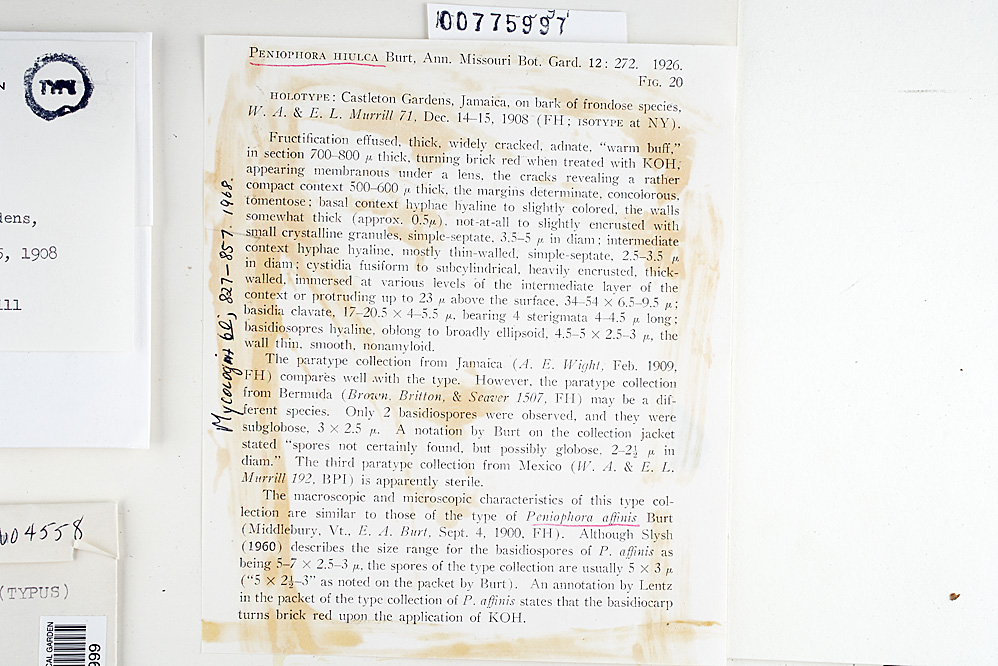 00775997
TYPE
dens,
5, 1908
ill
604558
(TYPUS)
CAL GARDEN
999
Mycologia 60; 827-857. 1968.
PENIOPHORA HIULCA Burt, Ann. Missouri Bot. Gard. 12: 272. 1926.
FIG. 20
HOLOTYPE: Castleton Gardens, Jamaica, on bark of frondose species,
W. A. & E. L. Murrill 71, Dec. 14–15, 1908 (FH; ISOTYPE at NY).
Fructification effused, thick, widely cracked, adnate, “warm buff,”
in section 700–800 μ thick, turning brick red when treated with KOH,
appearing membranous under a lens, the cracks revealing a rather
compact context 500–600 μ thick, the margins determinate, concolorous,
tomentose; basal context hyphae hyaline to slightly colored, the walls
somewhat thick (approx. 0.5μ), not-at-all to slightly encrusted with
small crystalline granules, simple-septate, 3.5–5 μ in diam; intermediate
context hyphae hyaline, mostly thin-walled, simple-septate, 2.5–3.5 μ
in diam; cystidia fusiform to subcylindrical, heavily encrusted, thick-
walled, immersed at various levels of the intermediate layer of the
context or protruding up to 23 μ above the surface, 34–54 × 6.5–9.5 μ;
basidia clavate, 17–20.5 × 4–5.5 μ, bearing 4 sterigmata 4–4.5 μ long;
basidiosopres hyaline, oblong to broadly ellipsoid, 4.5–5 × 2.5–3 μ, the
wall thin, smooth, nonamyloid.
The paratype collection from Jamaica (A. E. Wight, Feb. 1909,
FH) compares well with the type. However, the paratype collection
from Bermuda (Brown, Britton, & Seaver 1507, FH) may be a dif-
ferent species. Only 2 basidiospores were observed, and they were
subglobose, 3 × 2.5 μ. A notation by Burt on the collection jacket
stated “spores not certainly found, but possibly globose, 2–2½ μ in
diam.” The third paratype collection from Mexico (W. A. & E. L.
Murrill 192, BPI) is apparently sterile.
The macroscopic and microscopic characteristics of this type col-
lection are similar to those of the type of Peniophora affinis Burt
(Middlebury, Vt., E. A. Burt, Sept. 4, 1900, FH). Although Slysh
(1960) describes the size range for the basidiospores of P. affinis as
being 5–7 × 2.5–3 μ, the spores of the type collection are usually 5 × 3 μ
(“5 × 2½–3” as noted on the packet by Burt). An annotation by Lentz
in the packet of the type collection of P. affinis states that the basidiocarp
turns brick red upon the application of KOH.